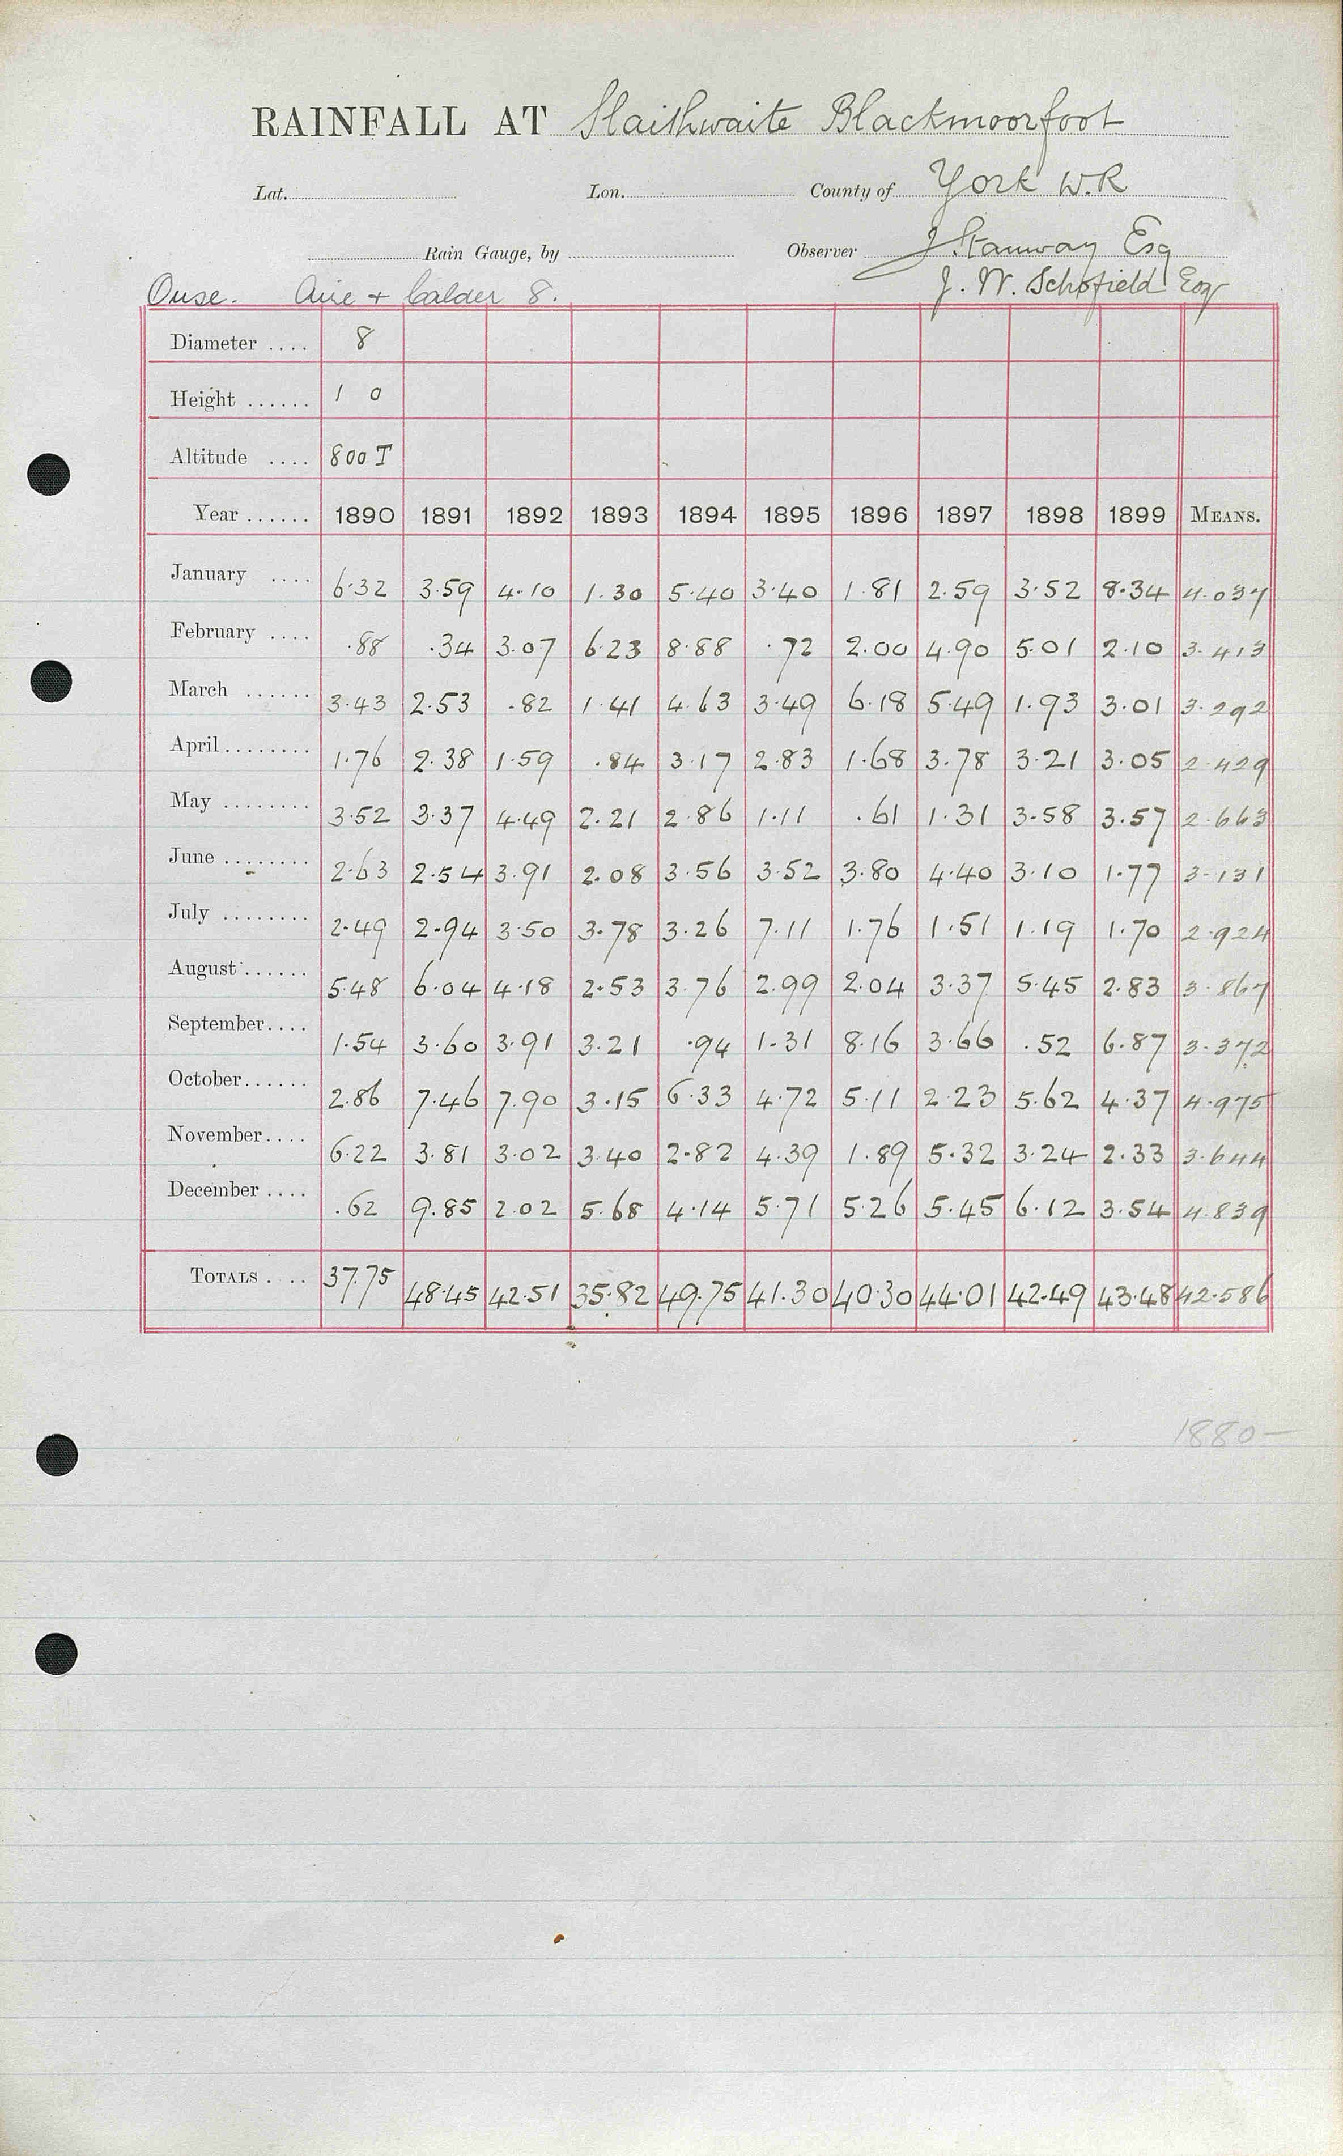 RAINFALL AT Slaithwaite Blackmoorfoot
Lat. Lon. County of York W.R
Rain Gauge, by Observer J Stanway Esq
J. W. Schofield Esq
Ouse. Aire + Calder 8.
Diameter .... 8
Height ...... 1 0
Altitude .... 800 T
Year ...... 1890 1891 1892 1893 1894 1895 1896 1897 1898 1899 MEANS.
January .... 6.32 3.59 4.10 1.30 5.40 3.40 1.81 2.59 3.52 8.34 4.037
February .... .88 .34 3.07 6.23 8.88 .72 2.00 4.90 5.01 2.10 3.413
March ...... 3.43 2.53 .82 1.41 4.63 3.49 6.18 5.49 1.93 3.01 3.292
April ........ 1.76 2.38 1.59 .84 3.17 2.83 1.68 3.78 3.21 3.05 2.429
May ........ 3.52 3.37 4.49 2.21 2.86 1.11 .61 1.31 3.58 3.57 2.663
June ........ 2.63 2.54 3.91 2.08 3.56 3.52 3.80 4.40 3.10 1.77 3.131
July ........ 2.49 2.94 3.50 3.78 3.26 7.11 1.76 1.51 1.19 1.70 2.924
August ...... 5.48 6.04 4.18 2.53 3.76 2.99 2.04 3.37 5.45 2.83 3.867
September .... 1.54 3.60 3.91 3.21 .94 1.31 8.16 3.66 .52 6.87 3.372
October ...... 2.86 7.46 7.90 3.15 6.33 4.72 5.11 2.23 5.62 4.37 4.975
November .... 6.22 3.81 3.02 3.40 2.82 4.39 1.89 5.32 3.24 2.33 3.644
December .... .62 9.85 2.02 5.68 4.14 5.71 5.26 5.45 6.12 3.54 4.839
TOTALS .... 37.75 48.45 42.51 35.82 49.75 41.30 40.30 44.01 42.49 43.48 42.586
1880-